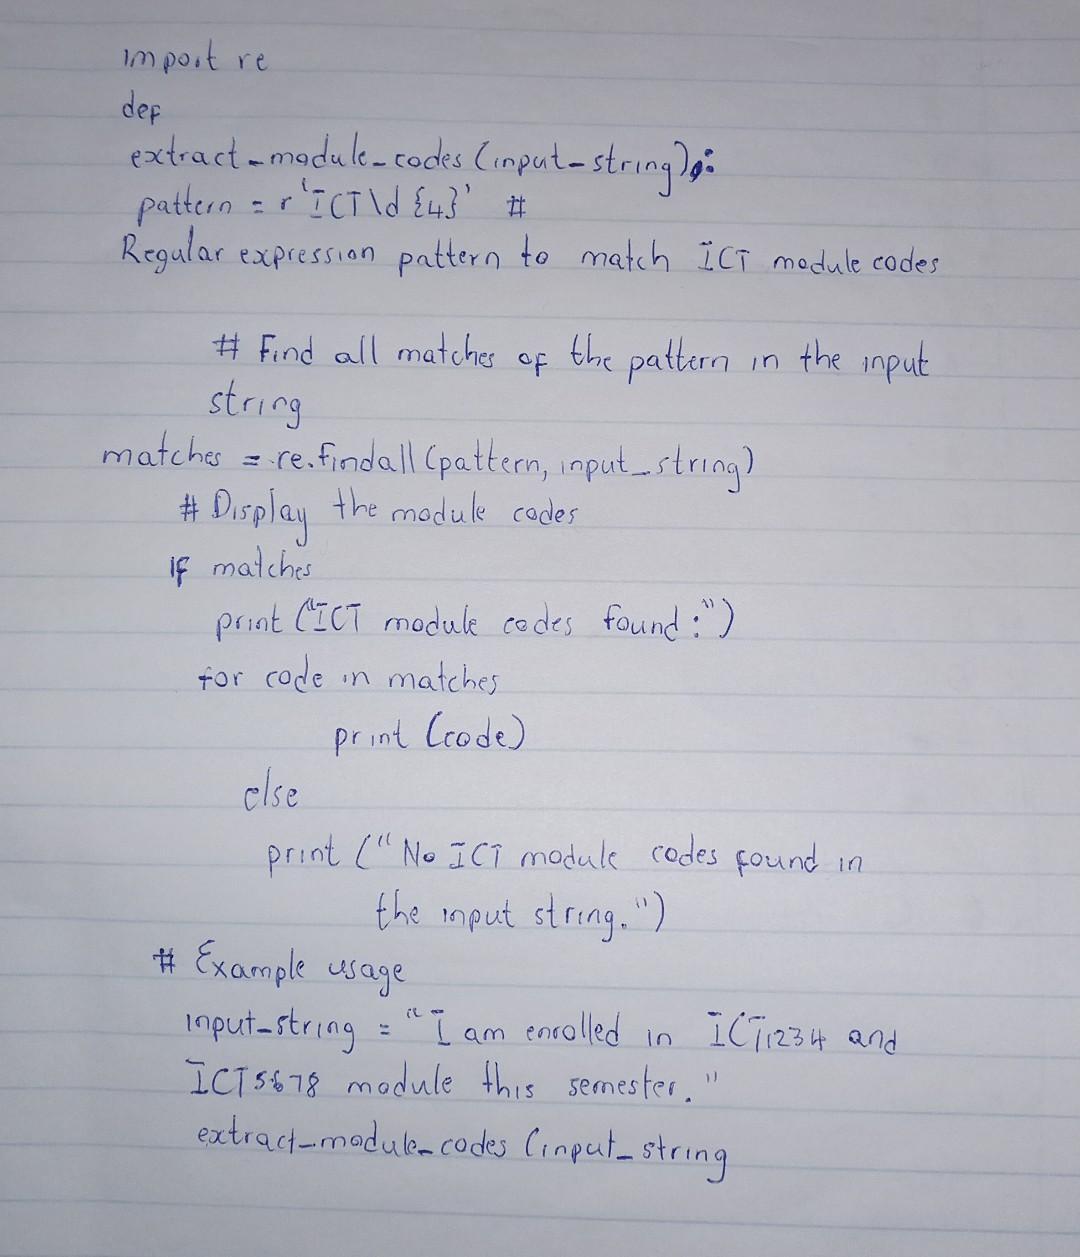 import re
def
extract_module_codes (input_string):
pattern = r'ICT\d {4}' #
Regular expression pattern to match ICT module codes
# Find all matches of the pattern in the input
string
matches = re.findall (pattern, input_string)
# Display the module codes
if matches
print ("ICT module codes found:")
for code in matches
print (code)
else
print ("No ICT module codes found in
the input string.")
# Example usage
input_string = "I am enrolled in ICT1234 and
ICT5678 module this semester."
extract_module_codes (input_string